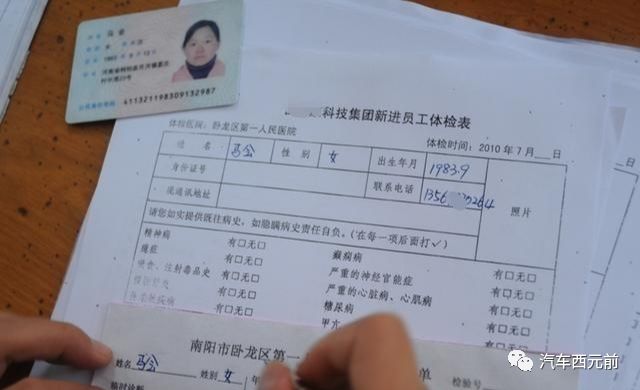 1983 年 9 月 13 日
411321198309132987
科技集团新进员工体检表
体检医院：卧龙区第一人民医院
体检时间：2010 年 7 月 日
姓 名 马会 性 别 女 出生年月 1983.9
身份证号 联系电话
现通讯地址 照片
请您如实提供既往病史，如隐瞒病史责任自负。（在每一项后面打✓）
精神病 有□无□ 癫痫病 有□无□
癔症 有□无□ 严重的神经官能症 有□无□
吸食、注射毒品史 有□无□ 严重的心脏病、心肌病 有□无□
有□无□ 糖尿病 有□无□
有□无□ 甲亢
南阳市卧龙区第一 单
姓名 马会 性别 女 年
临时诊断
汽车西元前